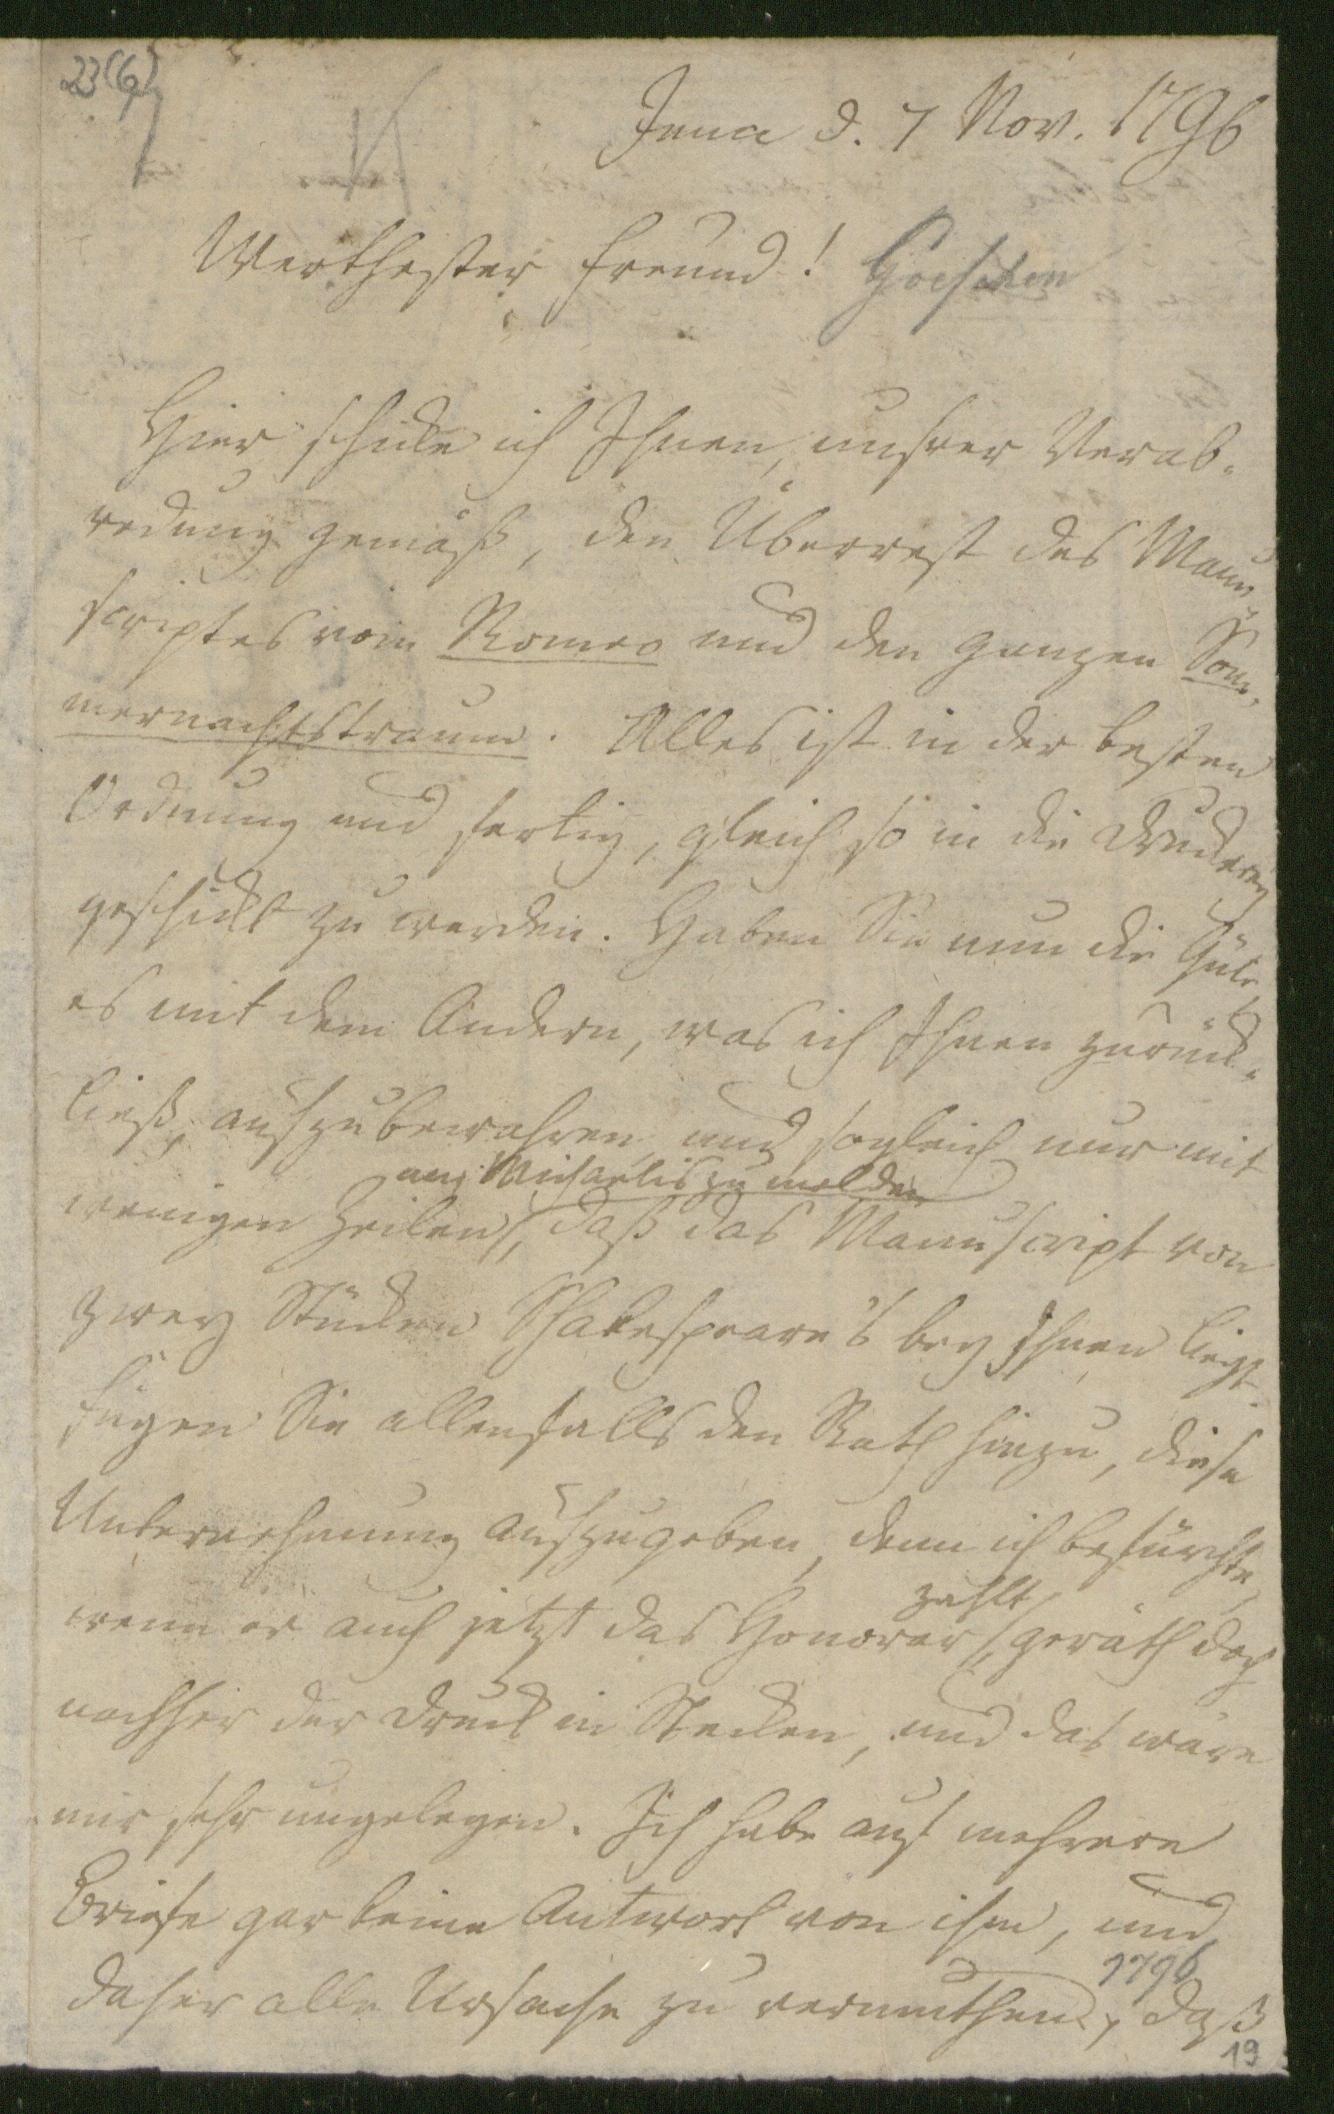 23(6)
Jena d. 7 Nov. 1796
Werthester Freund! Goeschen
Hier schicke ich Ihnen, unsrer Verab-
redung gemäß, den Überrest des Manu-
scriptes vom Romeo und den ganzen Som-
mernachtstraum. Alles ist in der besten
Ordnung und fertig, gleich so in die Druckerey
geschickt zu werden. Haben Sie nun die Güte
es mit dem Andern, was ich Ihnen zurück-
ließ, aufzubewahren, und sogleich nur mit
an Michaelis zu melden
wenigen Zeilen, daß das Manuscript von
zwey Stücken Shakespeare's bey Ihnen liegt.
Fügen Sie allenfalls den Rath hinzu, diese
Unternehmung aufzugeben, denn ich befürchte,
zahlt
wenn er auch jetzt das Honorar, geräth doch
nachher der Druck in Stecken, und das wäre
mir sehr ungelegen. Ich habe auf mehrere
Briefe gar keine Antwort von ihm, und
1796
daher alle Ursache zu vermuthen, daß
19